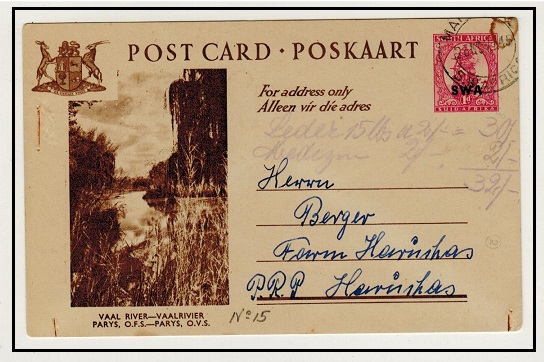 POST CARD · POSKAART
SOUTH AFRICA
SWA
1D
SUID-AFRIKA
For address only
Alleen vir die adres
Leder 15 lbs a 2/- = 30/-
Medizin 2/- 2/-
32/-
Herrn
Berger
Farm Haruchas
P.R.P Haruchas
VAAL RIVER—VAALRIVIER
PARYS, O.F.S.—PARYS, O.V.S.
No 15